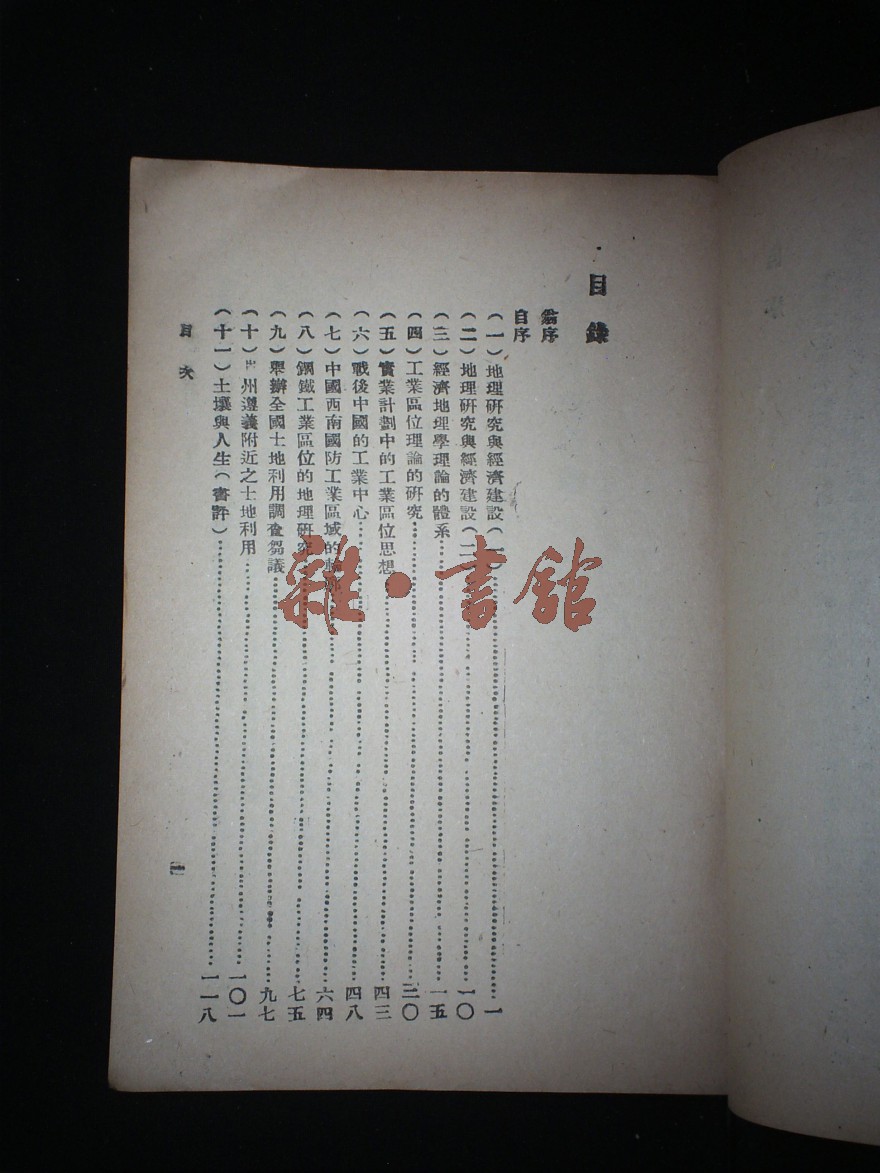 目錄
翁序
自序
（一）地理研究與經濟建設（一）⋯⋯一
（二）地理研究與經濟建設（二）⋯⋯一〇
（三）經濟地理學理論的體系⋯⋯一五
（四）工業區位理論的研究⋯⋯二〇
（五）實業計劃中的工業區位思想⋯⋯四三
（六）戰後中國的工業中心⋯⋯四八
（七）中國西南國防工業區域的⋯⋯六四
（八）鋼鐵工業區位的地理研究⋯⋯七五
（九）舉辦全國土地利用調查芻議⋯⋯九七
（十）州遵義附近之土地利用⋯⋯一〇一
（十一）土壤與人生（書評）⋯⋯一一八
目次
一
雜·書館